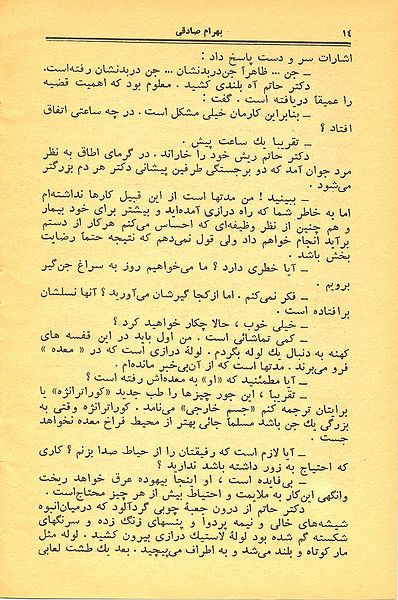 ۱٤ بهرام صادقی
اشارات سر و دست پاسخ داد :
ــ جن ... ظاهراً جن‌دربدنشان ... جن دربدنشان رفته‌است.
دکتر حاتم آه بلندی کشید . معلوم بود که اهمیت قضیه
را عمیقاً دریافته است . گفت :
ــ بنابراین کارمان خیلی مشکل است . در چه ساعتی اتفاق
افتاد ؟
ــ تقریبا یك ساعت پیش .
دکتر حاتم ریش خود را خاراند . در گرمای اطاق به نظر
مرد جوان آمد که دو برجستگی طرفین پیشانی دکتر هر دم بزرگتر
می‌شود .
ــ ببینید ! من مدتها است از این قبیل کارها نداشته‌ام
اما به خاطر شما که راه درازی آمده‌اید و بیشتر برای خود بیمار
و هم چنین از نظر وظیفه‌ای که احساس می‌کنم هرکار از دستم
برآید انجام خواهم داد ولی قول نمی‌دهم که نتیجه حتماً رضایت
بخش باشد .
ــ آیا خطری دارد ؟ ما می‌خواهیم روز به سراغ جن‌گیر
برویم .
ــ فکر نمی‌کنم . اما ازکجا گیرشان می‌آورید ؟ آنها نسلشان
برافتاده است .
ــ خیلی خوب ، حالا چکار خواهید کرد ؟
ــ کمی تماشائی است . من اول باید در این قفسه های
کهنه به دنبال یك لوله بگردم . لولهٔ درازی است که در « معده »
فرو می‌برند . مدتها است که از آن‌بی‌خبر مانده‌ام .
ــ آیا مطمئنید که «او» به معده‌اش رفته است ؟
ــ تقریباً ، این جور چیزها را طب جدید «کورانرانژه» یا
برایتان ترجمه کنم «جسم خارجی» می‌نامد . کورانرانژه وقتی به
بزرگی یك جن باشد مسلماً جائی بهتر از محیط فراخ معده نخواهد
جست .
ــ آیا لازم است که رفیقتان را از حیاط صدا بزنم ؟ کاری
که احتیاج به زور داشته باشد ندارید ؟
ــ بی‌فایده است ، او اینجا بیهوده عرق خواهد ریخت
وانگهی این‌کار به ملایمت و احتیاط بیش از هر چیز محتاج‌است .
دکتر حاتم از درون جعبهٔ چوبی گردآلود که درمیان‌انبوه
شیشه‌های خالی و نیمه پردوا و پنسهای زنگ زده و سرنگهای
شکسته گم شده بود لولهٔ لاستیك درازی بیرون کشید . لوله مثل
مار کوتاه و بلند می‌شد و به اطراف می‌پیچید . بعد یك طشت لعابی